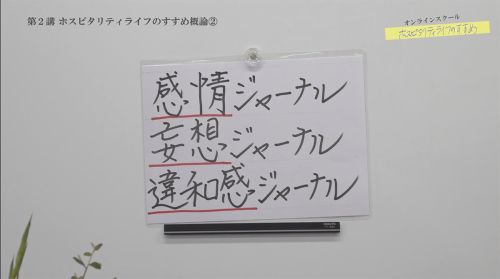 第2講 ホスピタリティライフのすすめ概論②
オンラインスクール
ホスピタリティライフのすすめ
感情ジャーナル
妄想ジャーナル
違和感ジャーナル